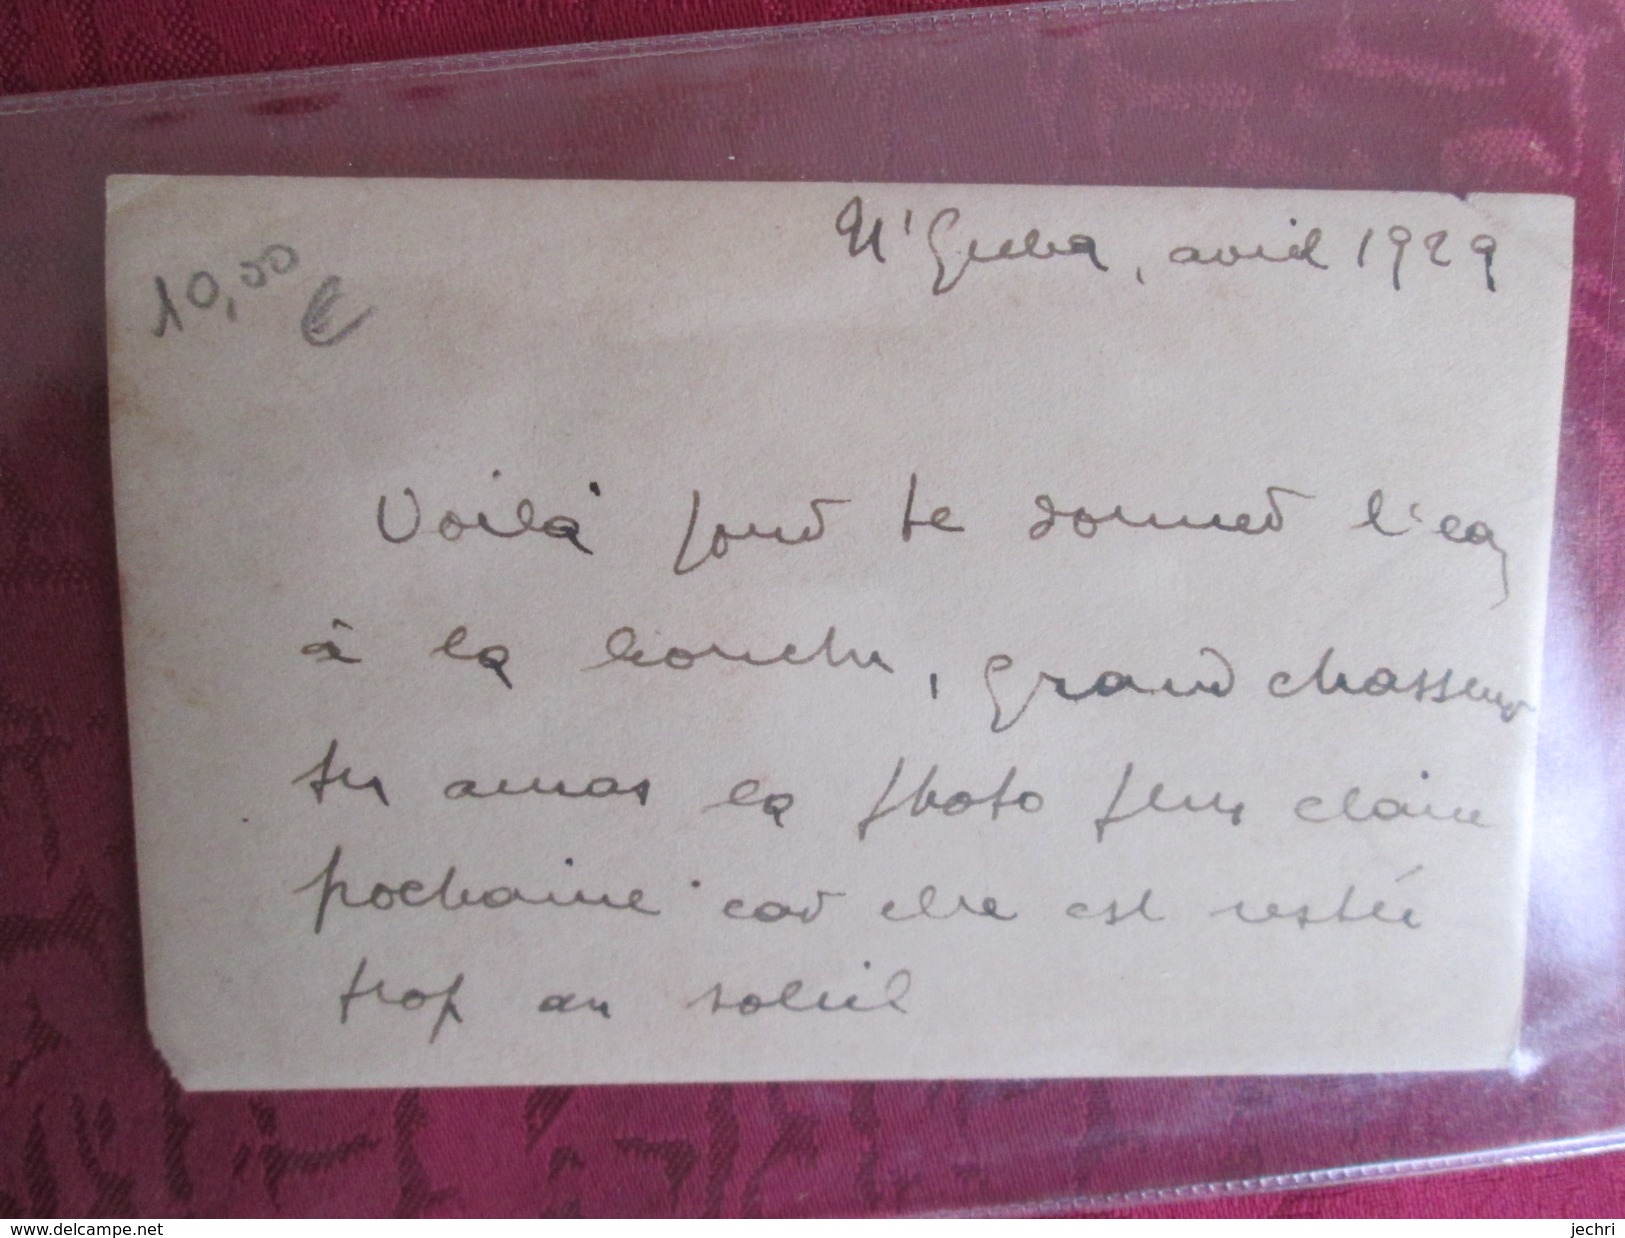 10,00 €
N'Guba, avril 1929
Voilà pour te donner l'eau
à la bouche, grand chasseur
tu auras la photo plus claire
prochaine car elle est restée
trop au soleil
www.delcampe.net
jechri